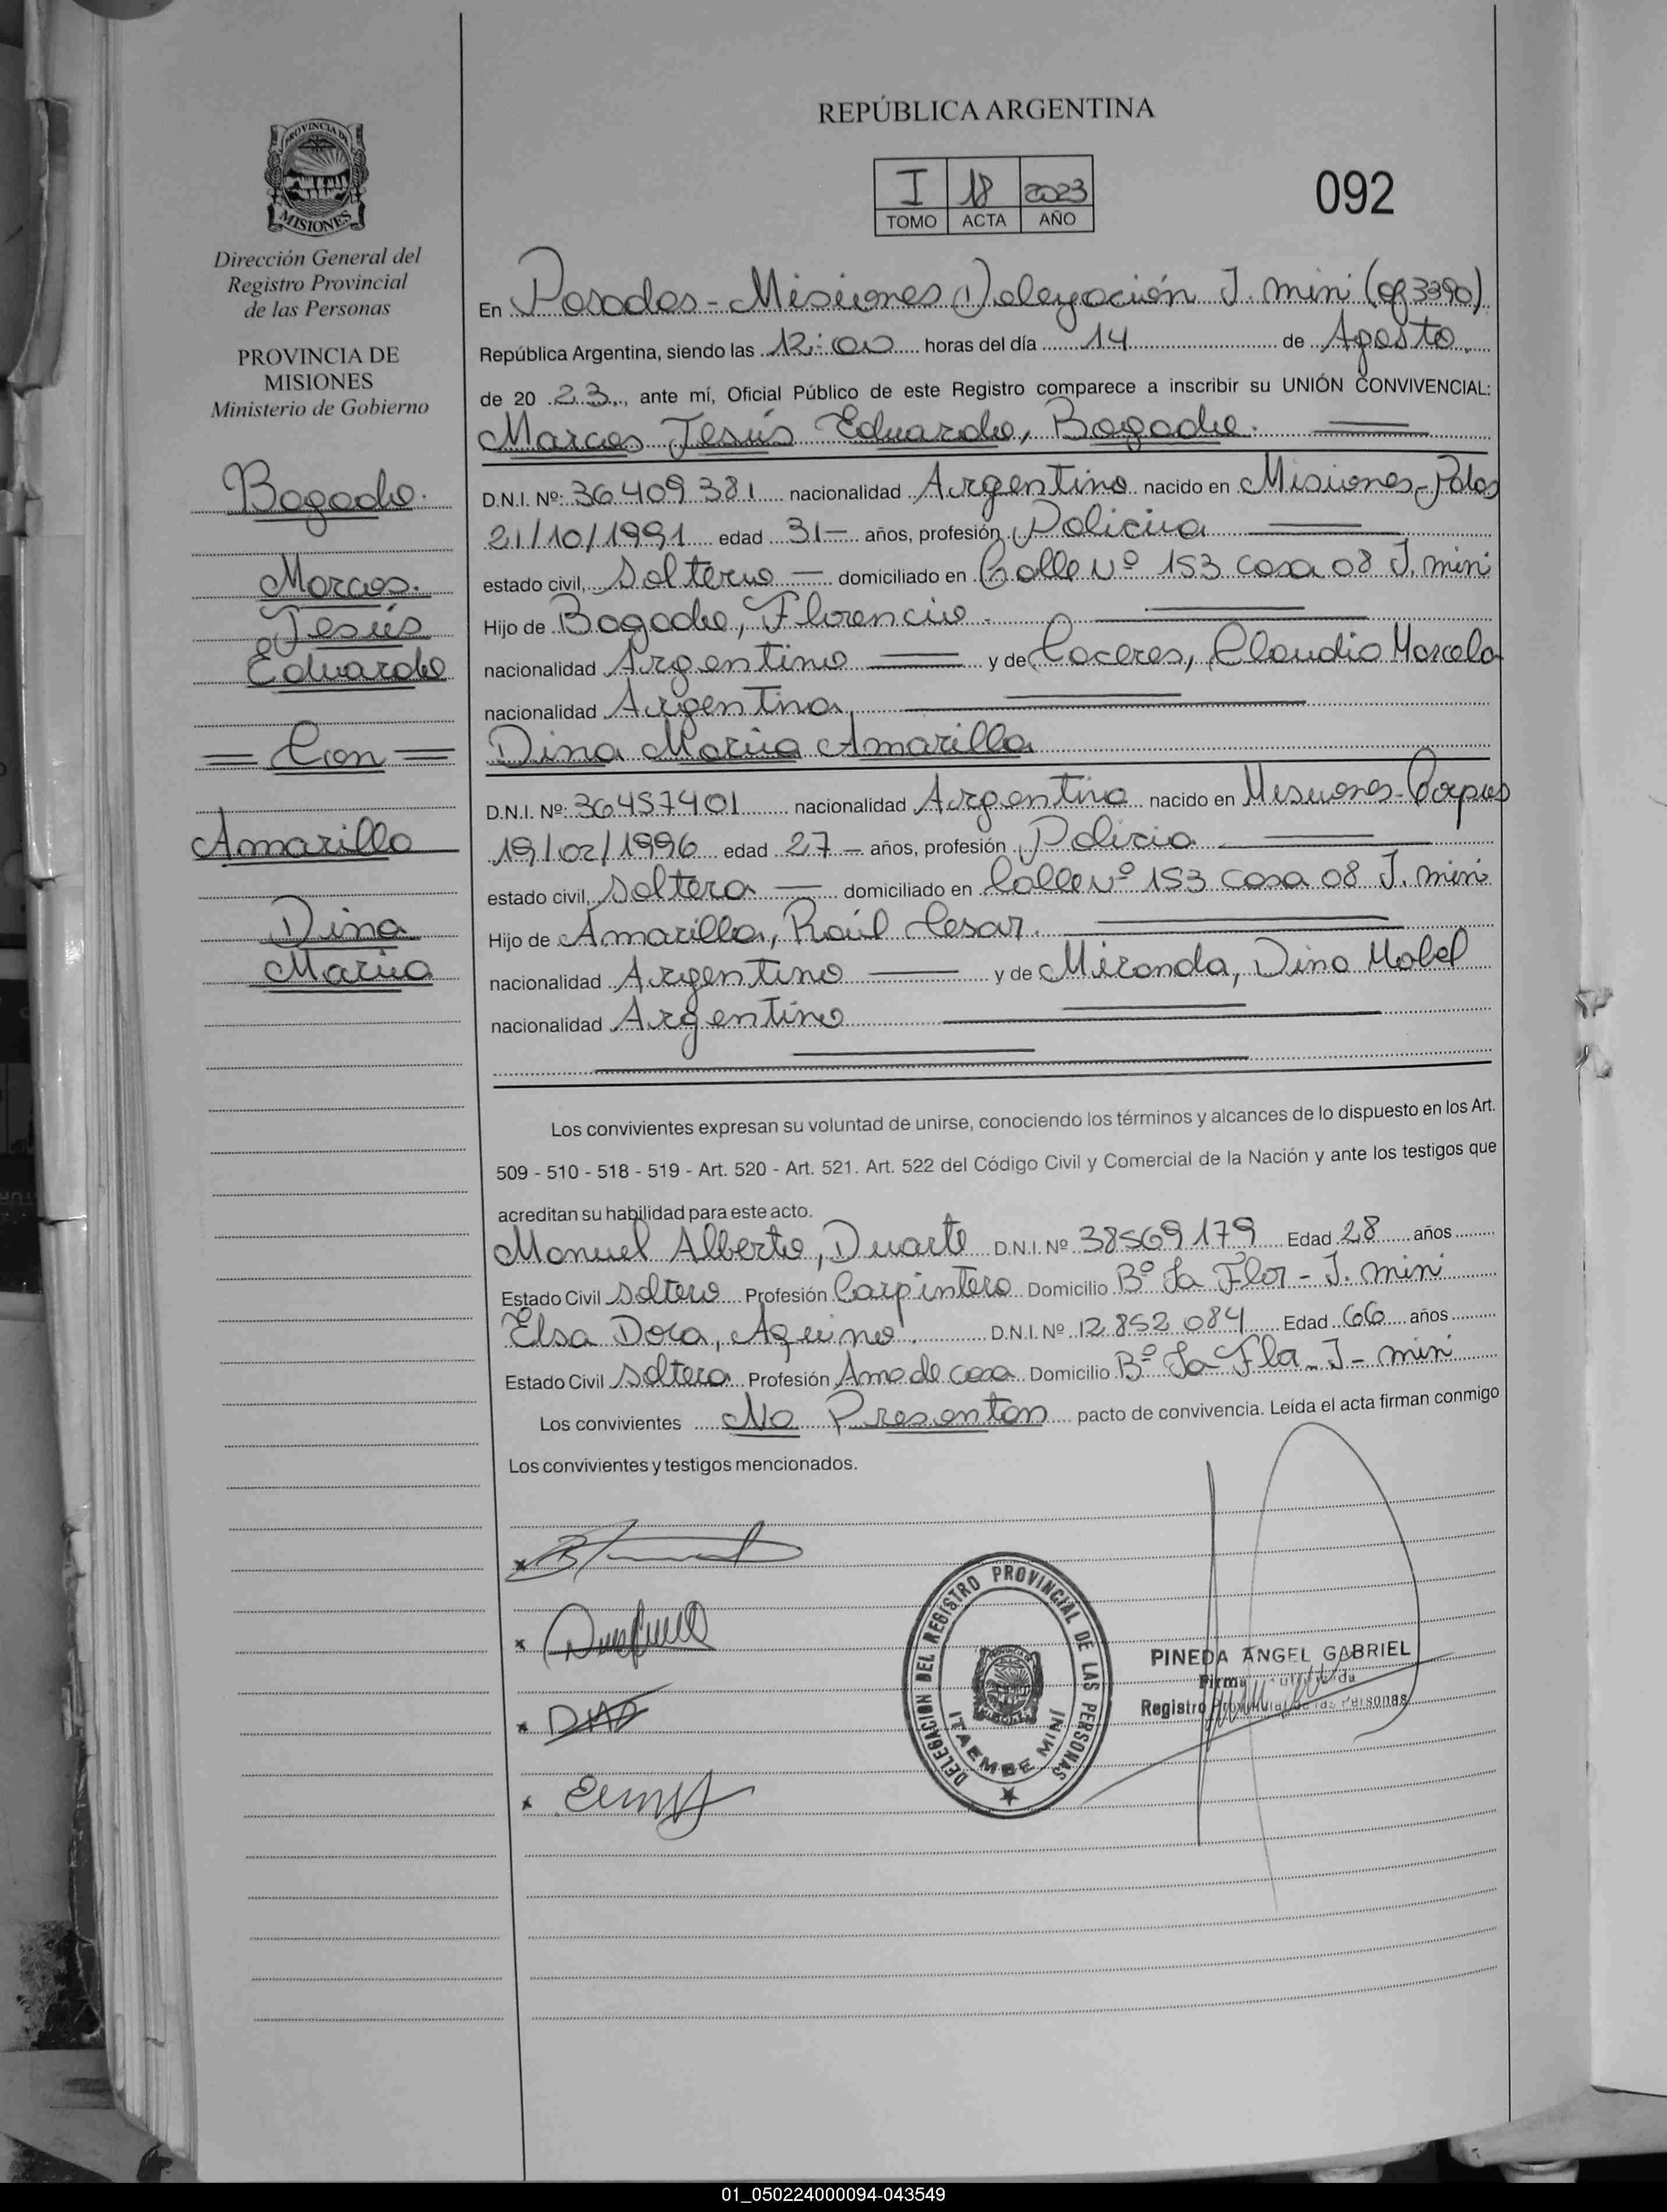 REPÚBLICA ARGENTINA
I 18 2023
TOMO ACTA AÑO
092
PROVINCIA DE
MISIONES
Dirección General del
Registro Provincial
de las Personas
PROVINCIA DE
MISIONES
Ministerio de Gobierno
Bogado.
Marcos.
Jesús
Eduardo
Con
Amarilla
Dina
María
En Posadas - Misiones Delegación I. mini (of 3390)
República Argentina, siendo las 12:00 horas del día 14 de Agosto.
de 20 23, ante mí, Oficial Público de este Registro comparece a inscribir su UNIÓN CONVIVENCIAL:
Marcos Jesús Eduardo, Bogado.
D.N.I. Nº: 36409381 nacionalidad Argentino nacido en Misiones - Pdas
21/10/1991 edad 31 años, profesión Policía
estado civil, Soltero domiciliado en Calle Nº 153 casa 08 I. mini
Hijo de Bogado, Florencio.
nacionalidad Argentino y de Caceres, Claudia Marcela
nacionalidad Argentina
Dina María Amarilla
D.N.I. Nº: 36457401 nacionalidad Argentina nacido en Misiones - Corpus
19/02/1996 edad 27 años, profesión Policía
estado civil, Soltera domiciliado en Calle Nº 153 casa 08 I. mini
Hijo de Amarilla, Raúl Cesar.
nacionalidad Argentino y de Miranda, Dina Mabel
nacionalidad Argentina
Los convivientes expresan su voluntad de unirse, conociendo los términos y alcances de lo dispuesto en los Art.
509 - 510 - 518 - 519 - Art. 520 - Art. 521. Art. 522 del Código Civil y Comercial de la Nación y ante los testigos que
acreditan su habilidad para este acto.
Manuel Alberto, Duarte D.N.I. Nº 38569179 Edad 28 años
Estado Civil Soltero Profesión Carpintero Domicilio Bº La Flor - I. mini
Elsa Dora, Aquino. D.N.I. Nº 12852084 Edad 66 años
Estado Civil Soltera Profesión Ama de casa Domicilio Bº La Flor - I - mini
Los convivientes No Presentan pacto de convivencia. Leída el acta firman conmigo
Los convivientes y testigos mencionados.
DELEGACION DEL REGISTRO PROVINCIAL DE LAS PERSONAS
ITAEMBE MINI
PINEDA ANGEL GABRIEL
Firma
Registro Provincial de las Personas
01_050224000094-043549